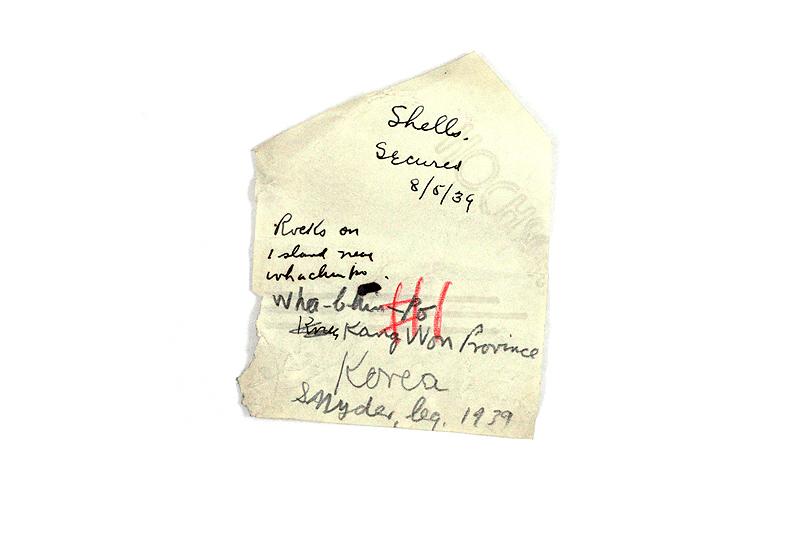 Shells.
Secured
8/5/39
Rocks on
Island near
whachinpo.
Wha-Chin-Po
#1
Kang Won Province
Korea
Snyder, leg. 1939